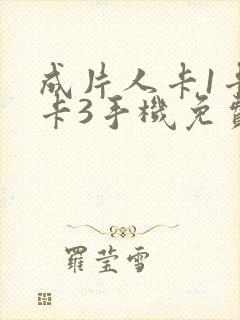 成片人卡1卡
卡3手機免費
羅莹雪